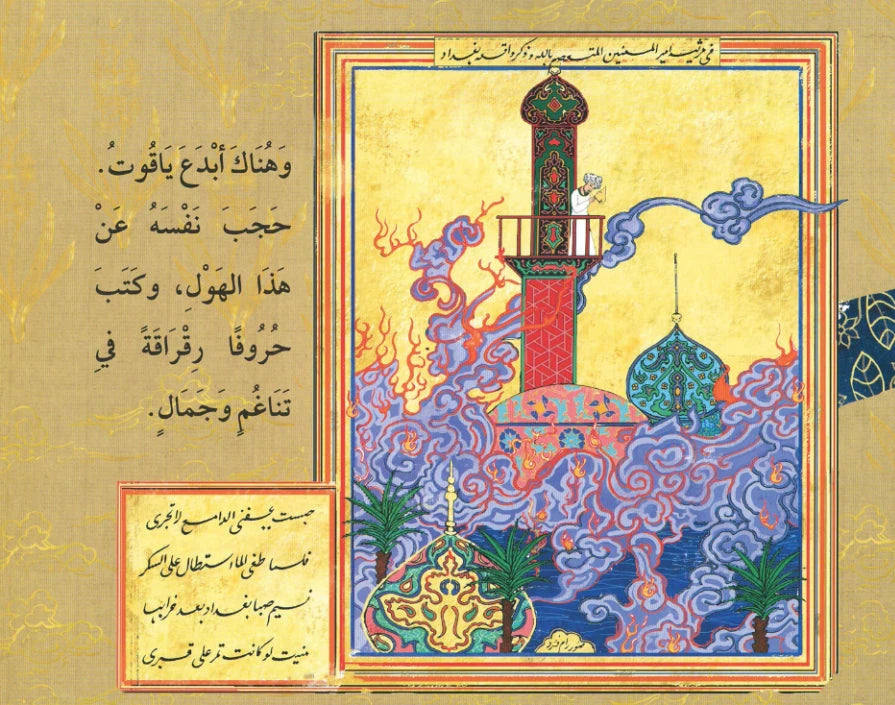 فى مرثيه امير بالله و ذكر واقعه بغداد
وَهُنَاكَ أبْدَعَ يَاقُوتُ.
حَجَبَ نَفْسَهُ عَنْ
هَذَا الهَوْلِ، وكَتَبَ
حُرُوفًا رِقْرَاقَةً فِي
تَنَاغُمٍ وَجَمَالٍ.
حبست بجفنى المدامع لا تجرى
فلما طغى الماء استطال على السكر
نسيم صبا بغداد بعد خرابها
تمنيت لو كانت تمر على قبرى